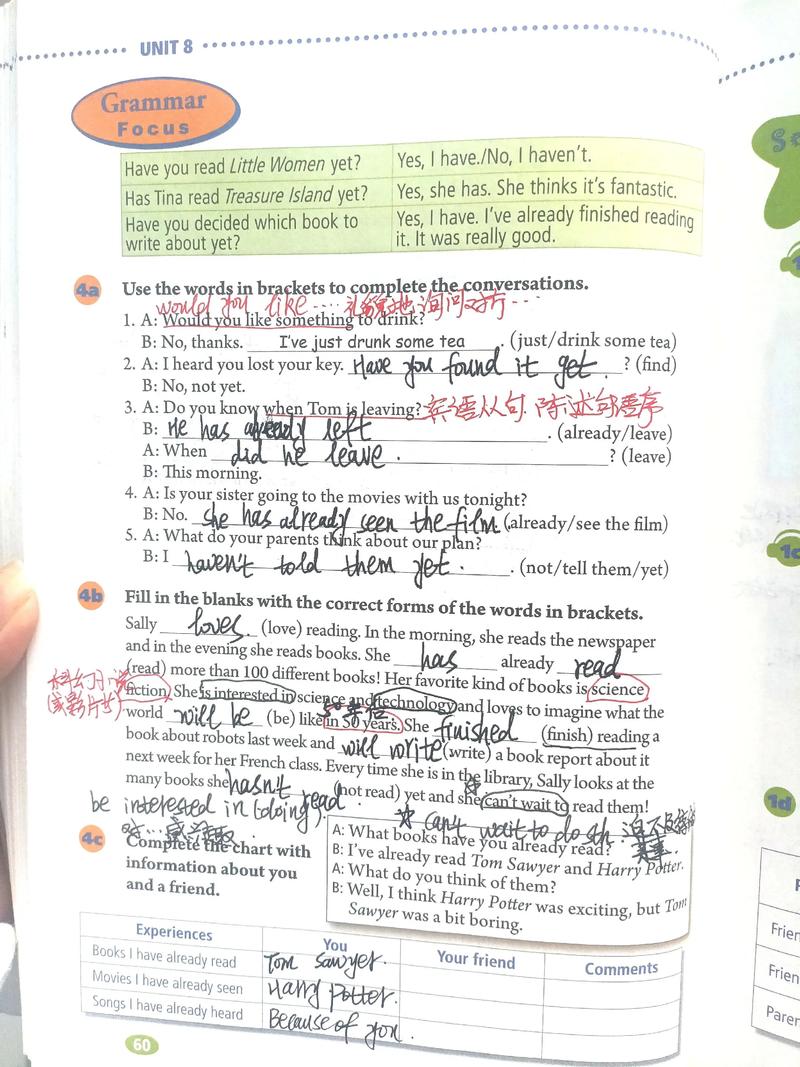 UNIT 8
Grammar
Focus
Have you read Little Women yet? Yes, I have./No, I haven't.
Has Tina read Treasure Island yet? Yes, she has. She thinks it's fantastic.
Have you decided which book to Yes, I have. I've already finished reading
write about yet? it. It was really good.
4a Use the words in brackets to complete the conversations.
would you like .... 礼貌地询问对方...
1. A: Would you like something to drink?
B: No, thanks. I've just drunk some tea. (just/drink some tea)
2. A: I heard you lost your key. Have you found it get. ? (find)
B: No, not yet.
3. A: Do you know when Tom is leaving? 宾语从句 陈述句语序
B: He has already left. (already/leave)
A: When did he leave. ? (leave)
B: This morning.
4. A: Is your sister going to the movies with us tonight?
B: No. she has already seen the film. (already/see the film)
5. A: What do your parents think about our plan?
B: I haven't told them yet. . (not/tell them/yet)
4b Fill in the blanks with the correct forms of the words in brackets.
Sally loves. (love) reading. In the morning, she reads the newspaper
and in the evening she reads books. She has already read
(read) more than 100 different books! Her favorite kind of books is science
科幻小说
fiction. She is interested in science and technology and loves to imagine what the
50年后
world will be (be) like in 50 years. She finished (finish) reading a
book about robots last week and will write (write) a book report about it
next week for her French class. Every time she is in the library, Sally looks at the
many books she hasn't read (not read) yet and she can't wait to read them!
be interested in (doing)
对...感兴趣.
can't wait to do sth.
4c Complete the chart with
information about you
and a friend.
A: What books have you already read?
B: I've already read Tom Sawyer and Harry Potter.
A: What do you think of them?
B: Well, I think Harry Potter was exciting, but Tom
Sawyer was a bit boring.
Experiences You Your friend Comments
Books I have already read Tom Sawyer.
Movies I have already seen Harry Potter.
Songs I have already heard Because of you.
60
1d
Frien
Frien
Paren